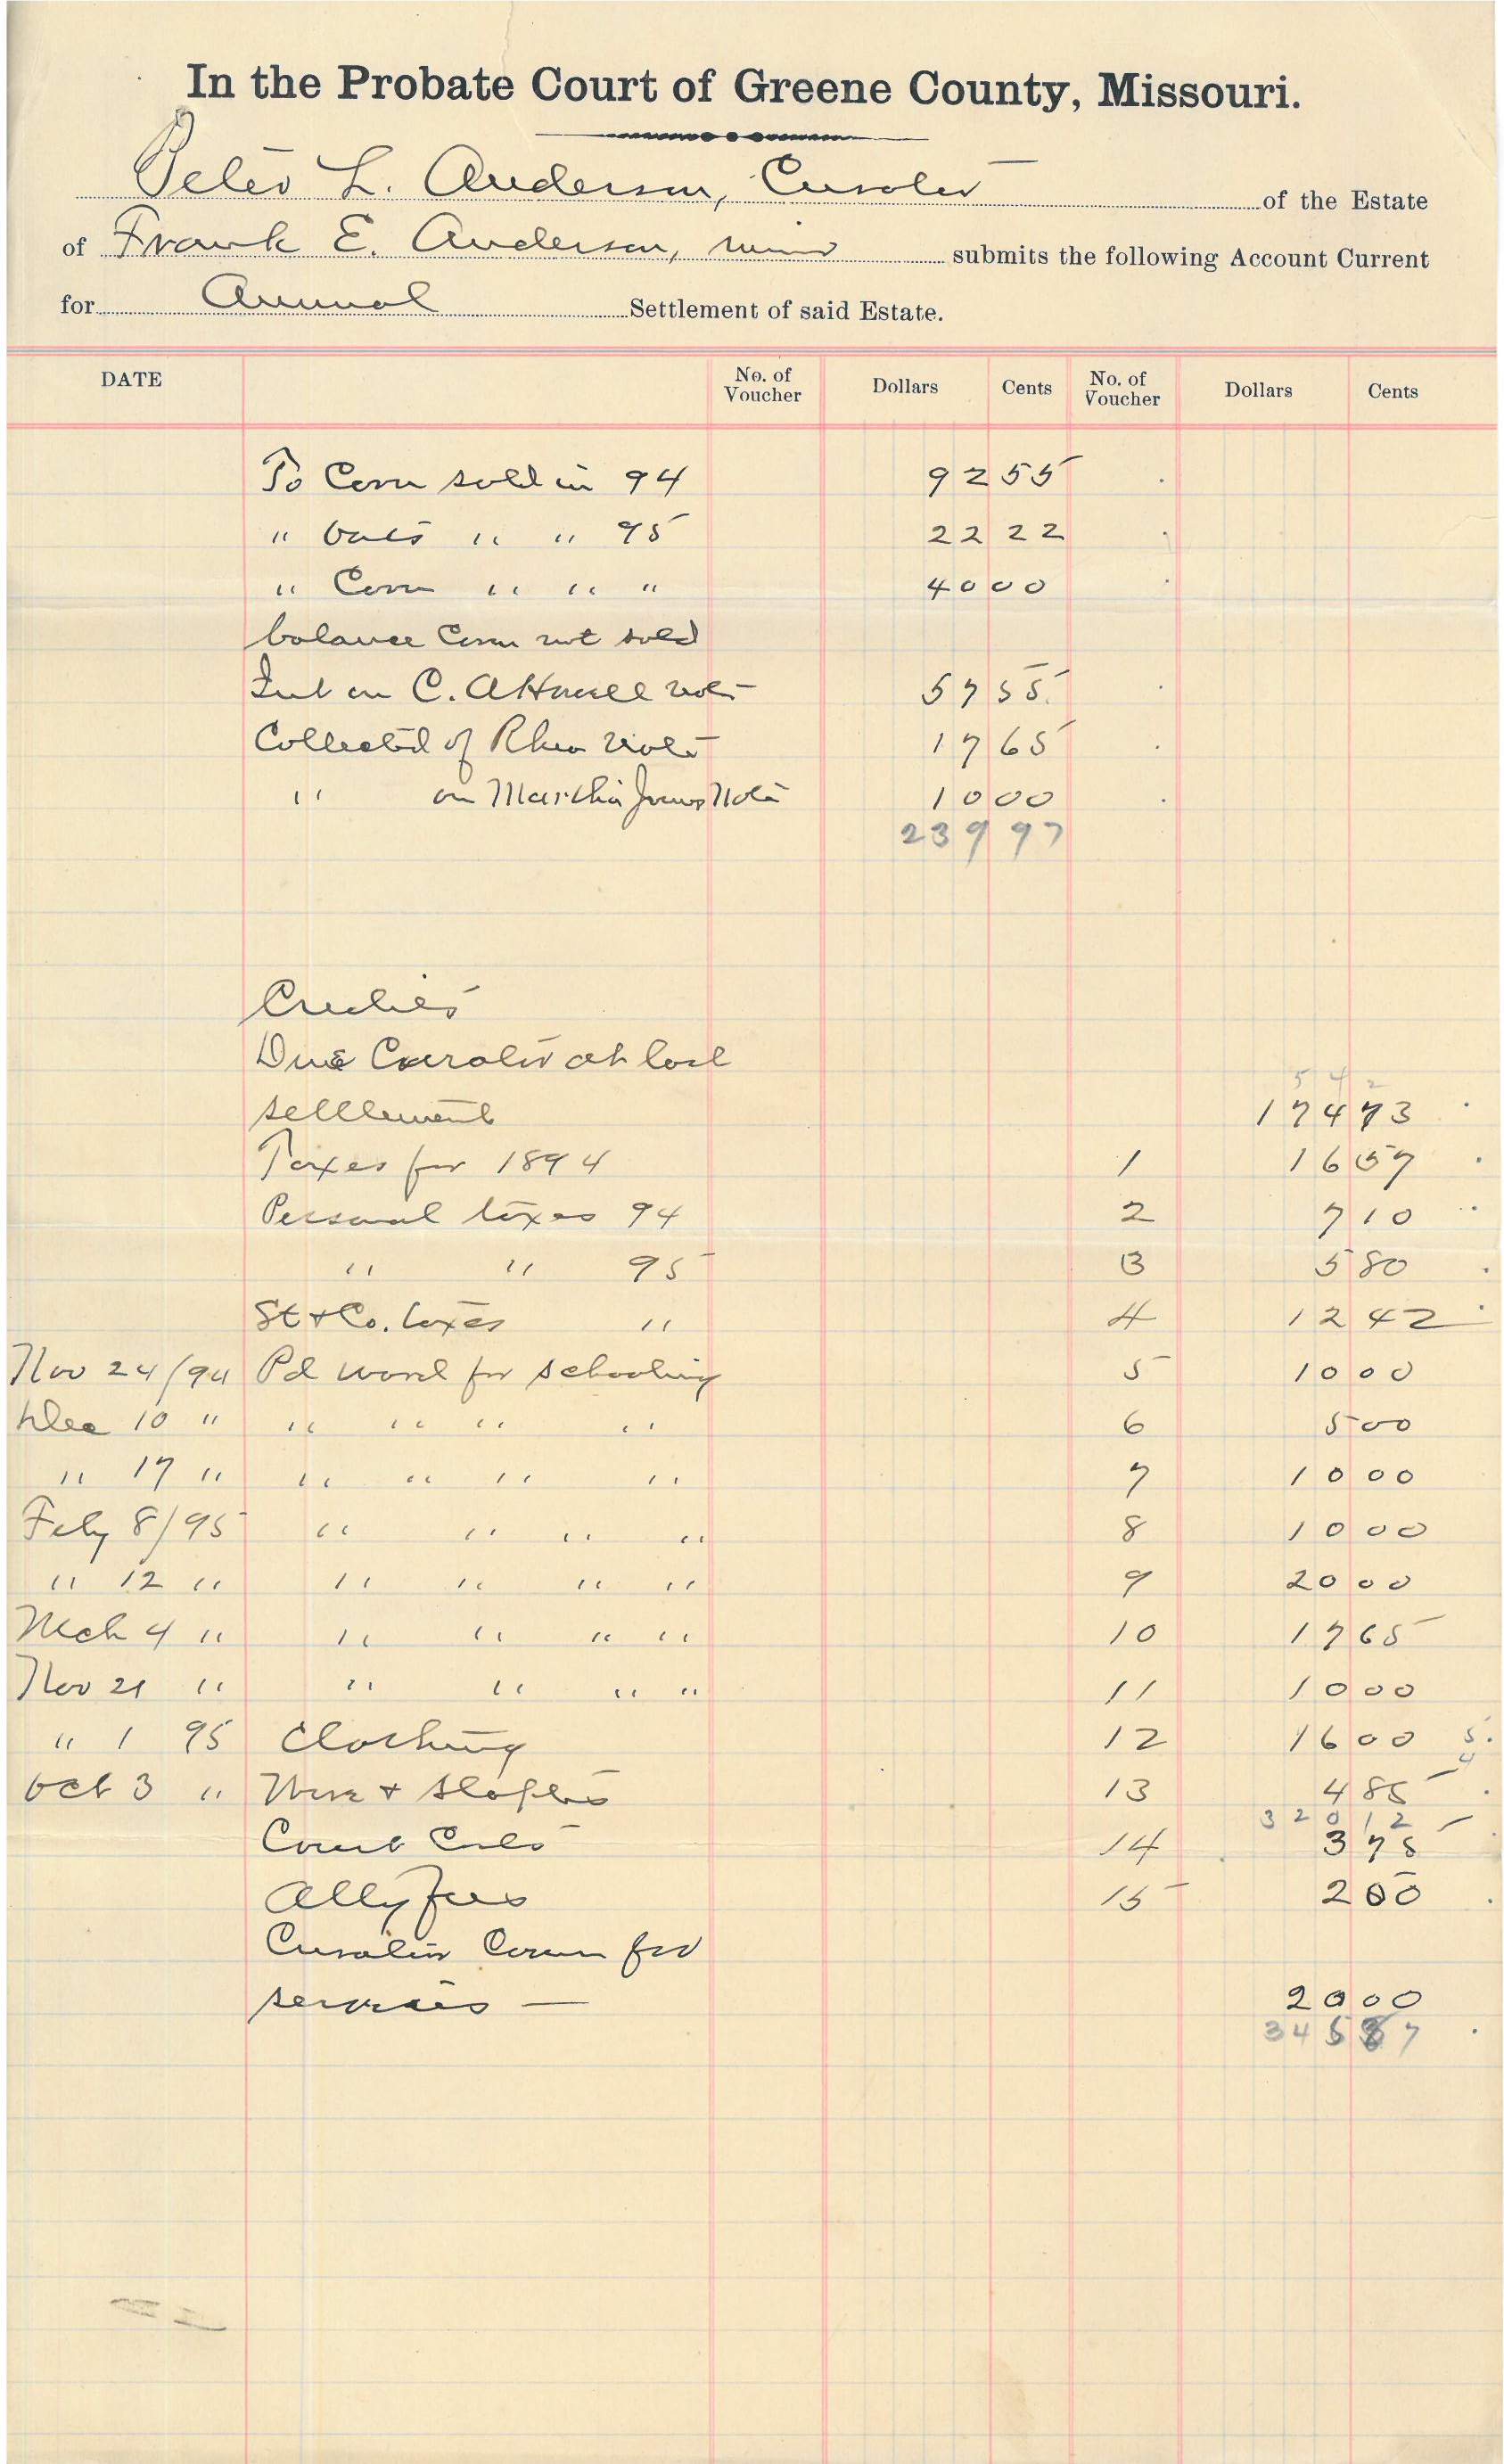 In the Probate Court of Greene County, Missouri.
Peter L. Anderson, Curator of the Estate
of Frank E. Anderson, minor submits the following Account Current
for Annual Settlement of said Estate.
DATE No. of Voucher Dollars Cents No. of Voucher Dollars Cents
To Corn sold in 94 92 55
" Oats " " 95 22 22
" Corn " " " 40 00
balance Corn not sold
Int on C. A Howell note 57 55
Collected of Rhea note 17 65
" on Martha Jones Note 10 00
239 97
Credits
Due Curator at last
5 4 2
settlement 174 73
Taxes for 1894 1 16 57
Personal taxes 94 2 7 10
" " 95 3 5 80
St & Co. taxes " 4 12 42
Nov 24/94 Pd ward for schooling 5 10 00
Dec 10 " " " " " 6 5 00
" 17 " " " " " 7 10 00
Feby 8/95 " " " " 8 10 00
" 12 " " " " " 9 20 00
Mch 4 " " " " " 10 17 65
Nov 21 " " " " " 11 10 00
" 1 95 Clothing 12 16 00 5
4
Oct 3 " Wire & Staples 13 4 85
320 12
Court Costs 14 3 75
Atty fees 15 2 00
Curator Comm for
services — 20 00
345 87